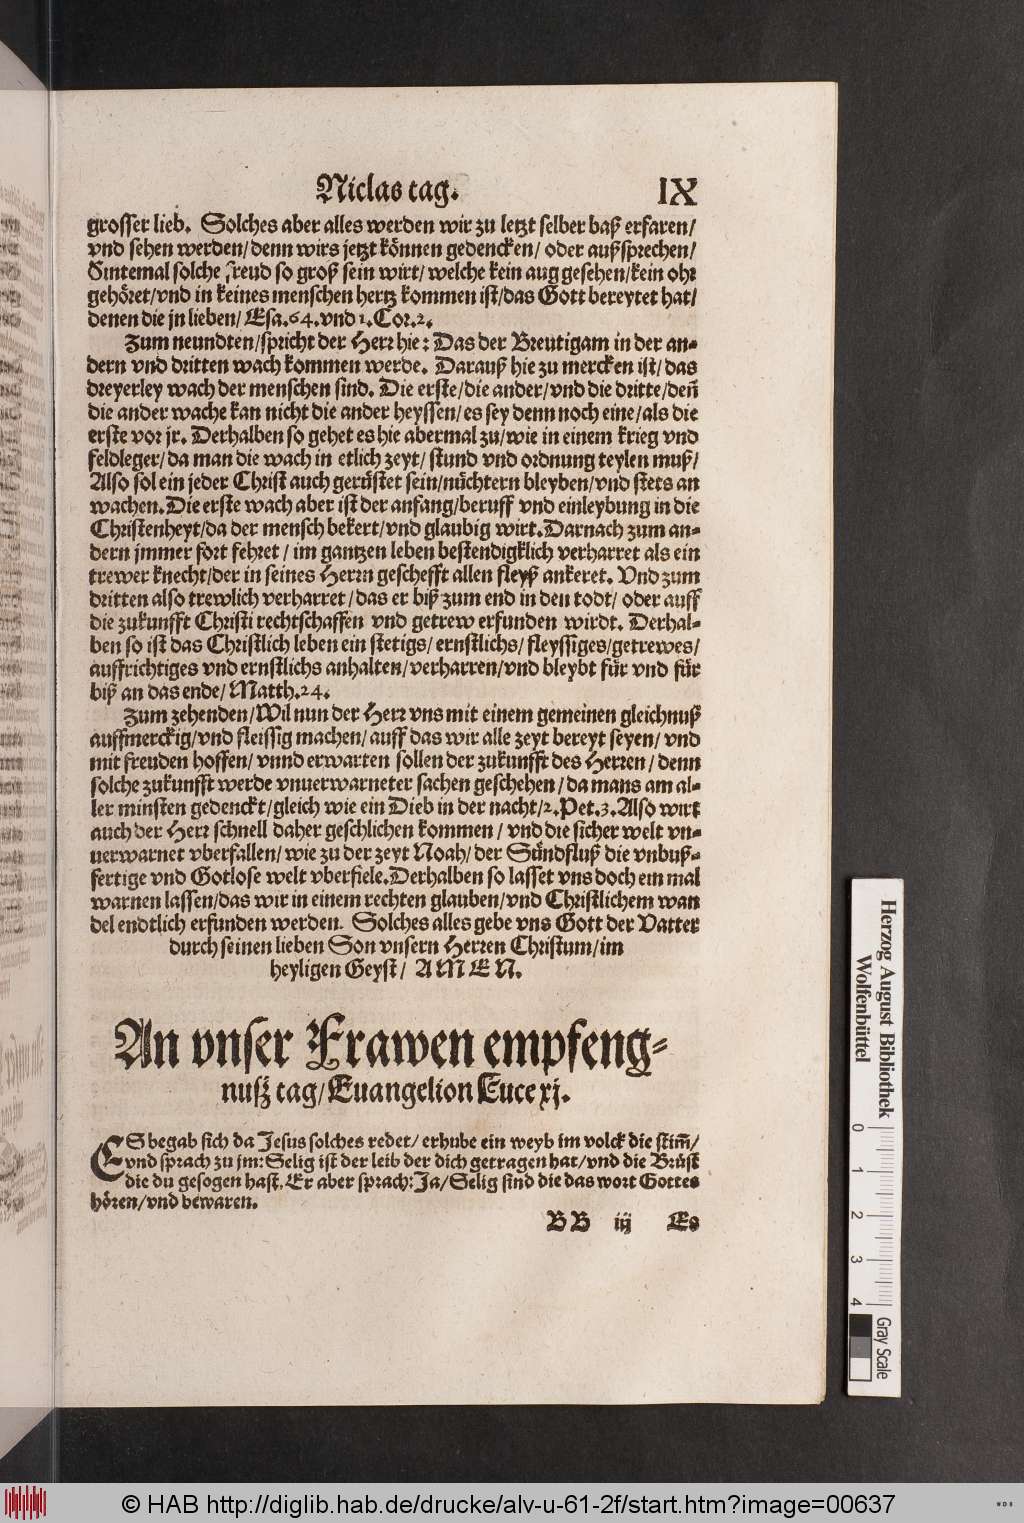 Niclas tag. IX
grosser lieb. Solches aber alles werden wir zu letzt selber baß erfaren/
vnd sehen werden/denn wirs jetzt können gedencken/ oder außsprechen/
Sintemal solche freud so groß sein wirt/ welche kein aug gesehen/kein ohr
gehöret/vnd in keines menschen hertz kommen ist/das Gott bereytet hat/
denen die jn lieben/ Esa.64.vnd 1.Cor.2.
Zum neundten/spricht der Herr hie: Das der Breutigam in der an-
dern vnd dritten wach kommen werde. Darauß hie zu mercken ist/das
dreyerley wach der menschen sind. Die erste/die ander/vnd die dritte/deñ
die ander wache kan nicht die ander heyssen/es sey denn noch eine/als die
erste vor jr. Derhalben so gehet es hie abermal zu/wie in einem krieg vnd
feldleger/da man die wach in etlich zeyt/ stund vnd ordnung teylen muß/
Also sol ein jeder Christ auch gerüstet sein/nüchtern bleyben/vnd stets an
wachen. Die erste wach aber ist der anfang/beruff vnd einleybung in die
Christenheyt/da der mensch bekert/vnd glaubig wirt. Darnach zum an-
dern jmmer fort fehret/ im gantzen leben bestendigklich verharret als ein
trewer knecht/der in seines Herrn geschefft allen fleyß ankeret. Vnd zum
dritten also trewlich verharret/das er biß zum end in den todt/ oder auff
die zukunfft Christi rechtschaffen vnd getrew erfunden wirdt. Derhal-
ben so ist das Christlich leben ein stetigs/ ernstlichs/ fleyssiges/getrewes/
auffrichtiges vnd ernstlichs anhalten/verharren/vnd bleybt für vnd für
biß an das ende/ Matth.24.
Zum zehenden/Wil nun der Herr vns mit einem gemeinen gleichnuß
auffmerckig/vnd fleissig machen/auff das wir alle zeyt bereyt seyen/ vnd
mit freuden hoffen/ vnnd erwarten sollen der zukunfft des Herren/ denn
solche zukunfft werde vnuerwarneter sachen geschehen/da mans am al-
ler minsten gedenckt/gleich wie ein Dieb in der nacht/2.Pet.3.Also wirt
auch der Herr schnell daher geschlichen kommen/ vnd die sicher welt vn-
uerwarnet vberfallen/wie zu der zeyt Noah/der Sündfluß die vnbuß-
fertige vnd Gotlose welt vberfiele.Derhalben so lasset vns doch ein mal
warnen lassen/das wir in einem rechten glauben/vnd Christlichem wan
del endtlich erfunden werden. Solches alles gebe vns Gott der Vatter
durch seinen lieben Son vnsern Herren Christum/im
heyligen Geyst/ AMEN.
An vnser Frawen empfeng-
nuß tag/Euangelion Luce xj.
ES begab sich da Jesus solches redet/ erhube ein weyb im volck die stim̃/
vnd sprach zu jm: Selig ist der leib der dich getragen hat/vnd die Brüst
die du gesogen hast. Er aber sprach: Ja/Selig sind die das wort Gottes
hören/vnd bewaren.
BB iij Es
Herzog August Bibliothek
Wolfenbüttel
0 1 2 3 4
Gray Scale
© HAB http://diglib.hab.de/drucke/alv-u-61-2f/start.htm?image=00637